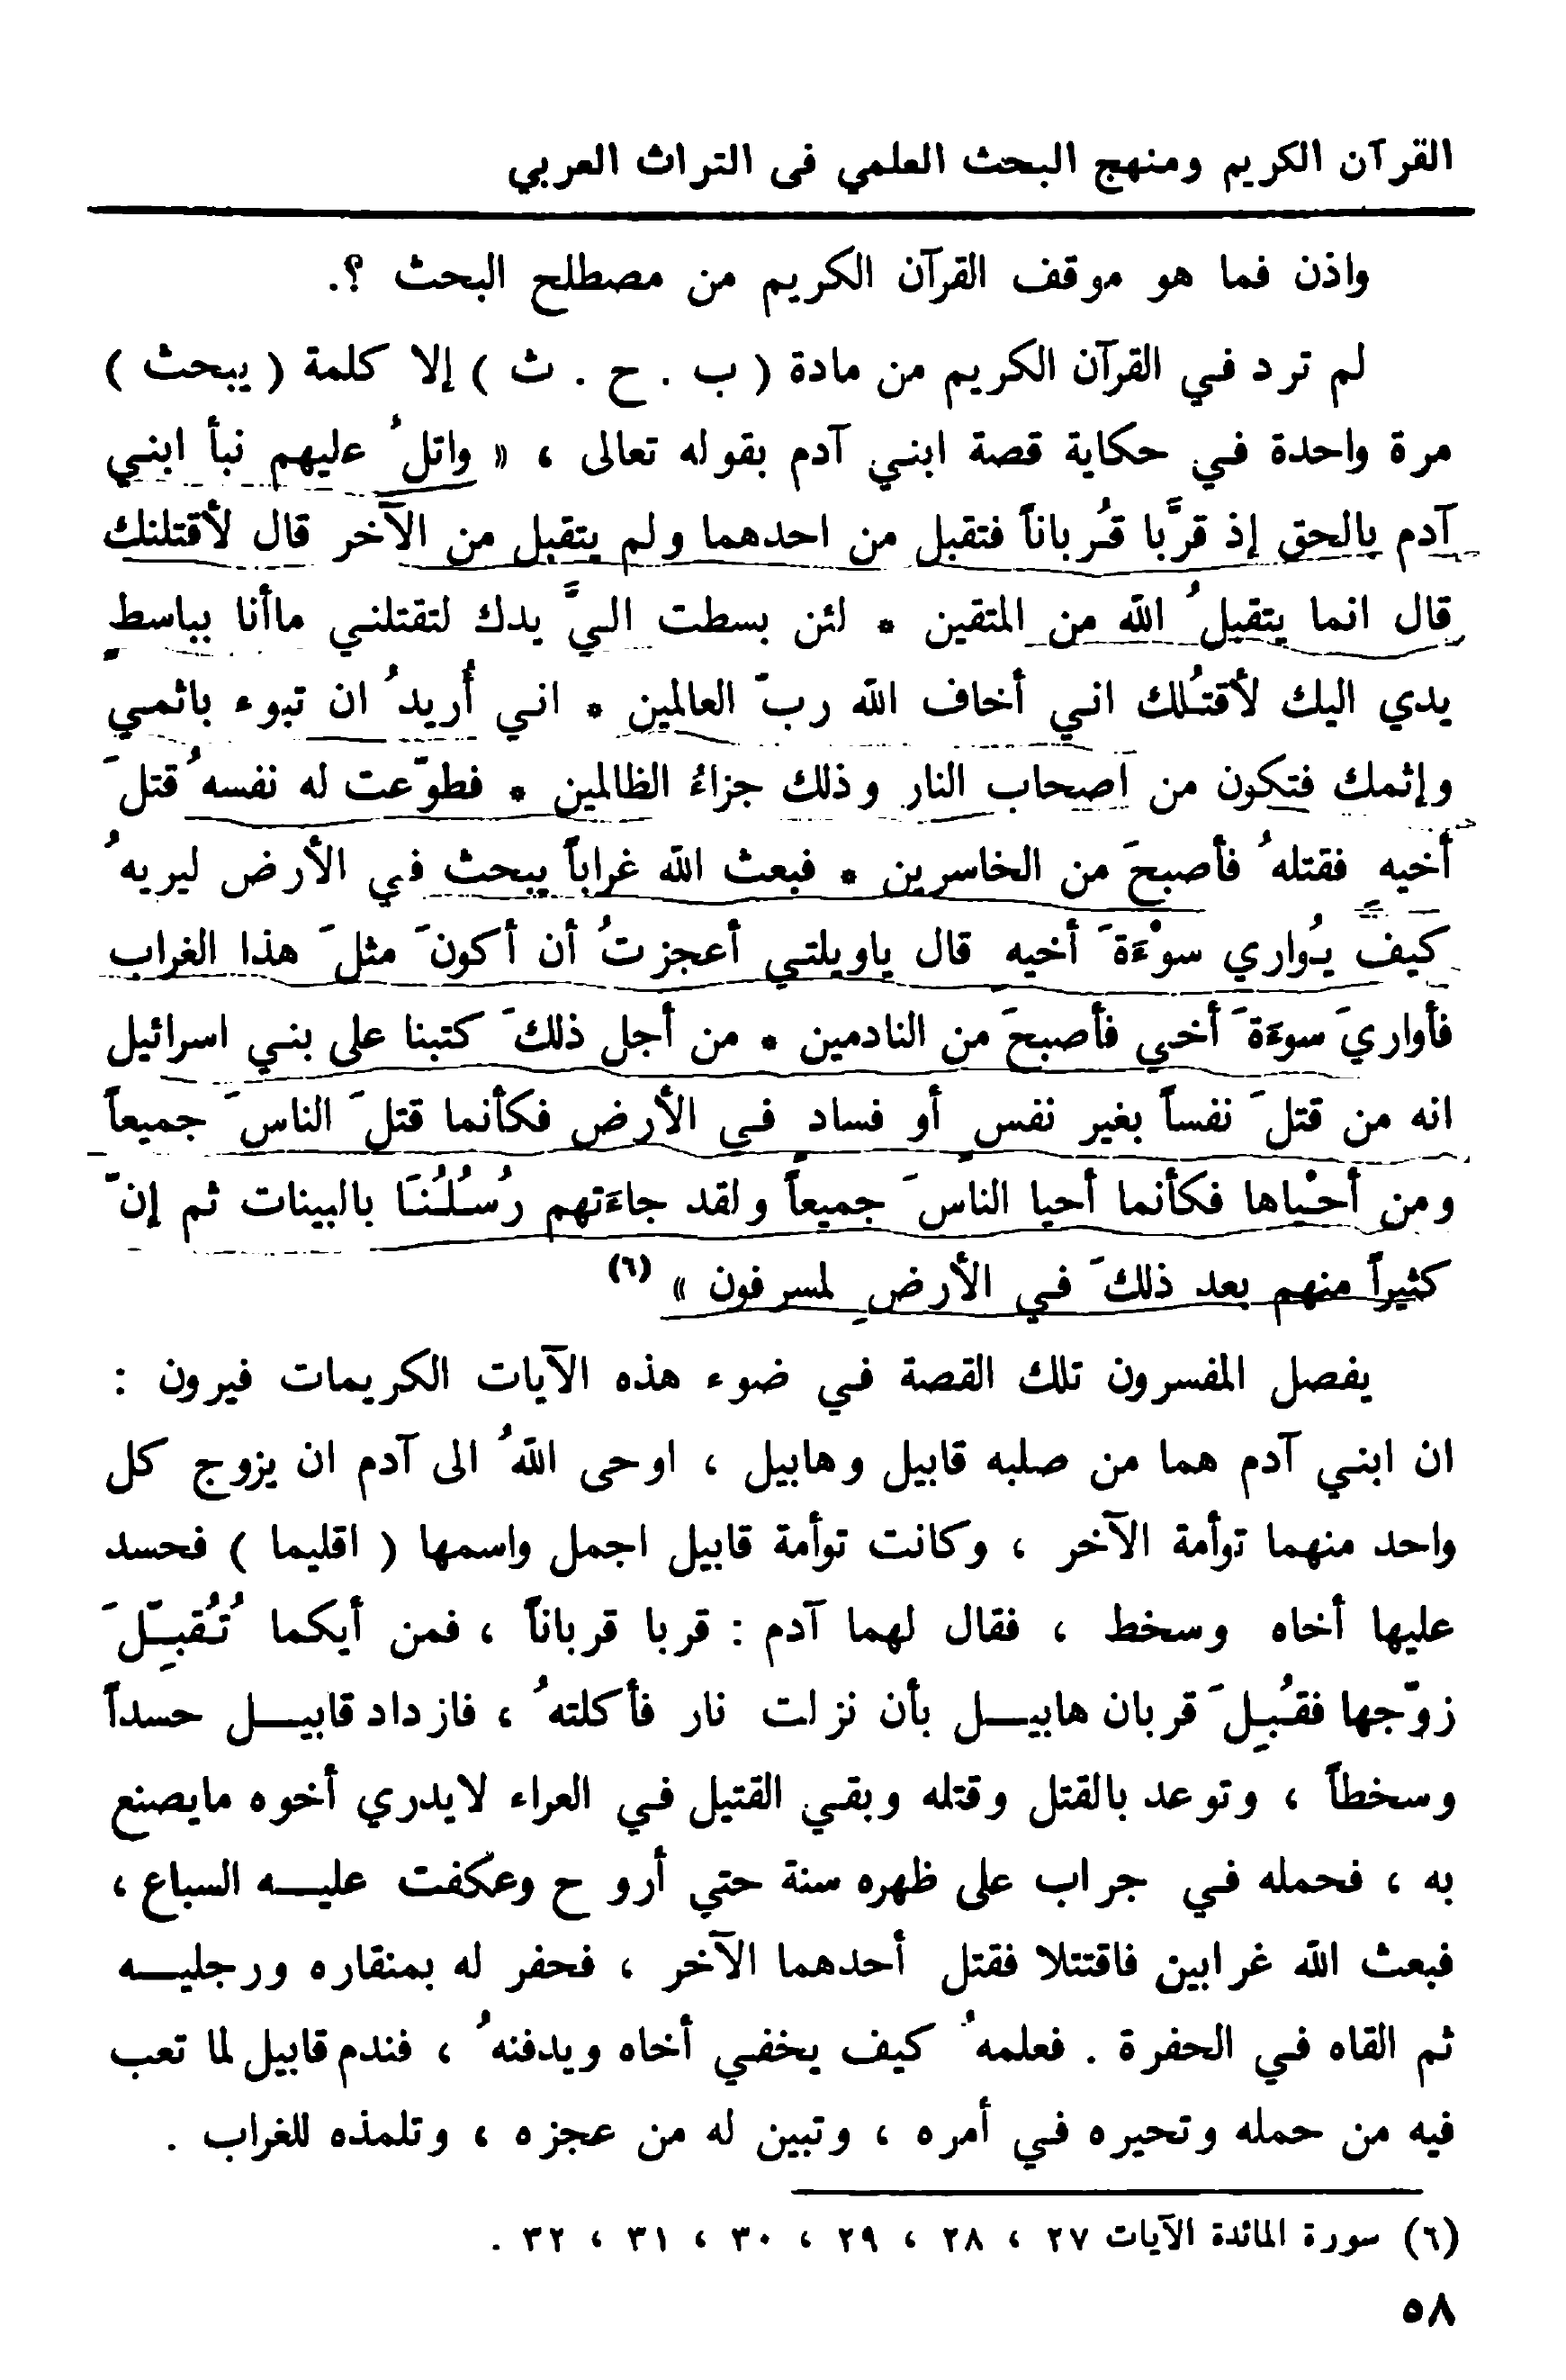 القرآن الكريم ومنهج البحث العلمي فى التراث العربي
واذن فما هو موقف القرآن الكريم من مصطلح البحث ؟.
لم ترد في القرآن الكريم من مادة ( ب . ح . ث ) إلا كلمة ( يبحث )
مرة واحدة في حكاية قصة ابني آدم بقوله تعالى ، « واتلُ عليهم نبأ ابني
آدم بالحق إذ قرَّبا قُرباناً فتقبل من احدهما ولم يتقبل من الآخر قال لأقتلنك
قال انما يتقبلُ الله من المتقين * لئن بسطت اليَّ يدك لتقتلني ماأنا بباسطٍ
يدي اليك لأقتُلك اني أخاف الله ربّ العالمين * اني أُريدُ ان تبوء باثمي
وإثمك فتكون من اصحاب النار وذلك جزاءُ الظالمين * فطوّعت له نفسهُ قتلَ
أخيهِ فقتلهُ فأصبحَ من الخاسرين * فبعث الله غراباً يبحث في الأرض ليريهُ
كيفَ يُواري سوْءَةَ أخيهِ قال ياويلتي أعجزتُ أن أكونَ مثلَ هذا الغراب
فأواريَ سوءَةَ أخي فأصبحَ من النادمين * من أجل ذلكَ كتبنا على بني اسرائيل
انه من قتلَ نفساً بغير نفسٍ أو فسادٍ في الأرض فكأنما قتلَ الناسَ جميعاً
ومن أحْياها فكأنما أحيا الناسَ جميعاً ولقد جاءَتهم رُسُلُنَا بالبينات ثم إنّ
كثيراً منهم بعد ذلكَ في الأرضِ لمسرفون » (٦)
يفصل المفسرون تلك القصة في ضوء هذه الآيات الكريمات فيرون :
ان ابني آدم هما من صلبه قابيل وهابيل ، اوحى اللهُ الى آدم ان يزوج كل
واحد منهما توأمة الآخر ، وكانت توأمة قابيل اجمل واسمها ( اقليما ) فحسد
عليها أخاه وسخط ، فقال لهما آدم : قربا قرباناً ، فمن أيكما تُقُبِّلَ
زوّجها فقُبِلَ قربان هابيـل بأن نزلت نار فأكلتهُ ، فازداد قابيـل حسداً
وسخطاً ، وتوعد بالقتل وقتله وبقي القتيل في العراء لايدري أخوه مايصنع
به ، فحمله في جراب على ظهره سنة حتي أروح وعكفت عليـه السباع ،
فبعث الله غرابين فاقتتلا فقتل أحدهما الآخر ، فحفر له بمنقاره ورجليـه
ثم القاه في الحفرة . فعلمهُ كيف يخفي أخاه ويدفنهُ ، فندم قابيل لما تعب
فيه من حمله وتحيره في أمره ، وتبين له من عجزه ، وتلمذه للغراب .
(٦) سورة المائدة الآيات ٢٧ ، ٢٨ ، ٢٩ ، ٣٠ ، ٣١ ، ٣٢ .
٥٨